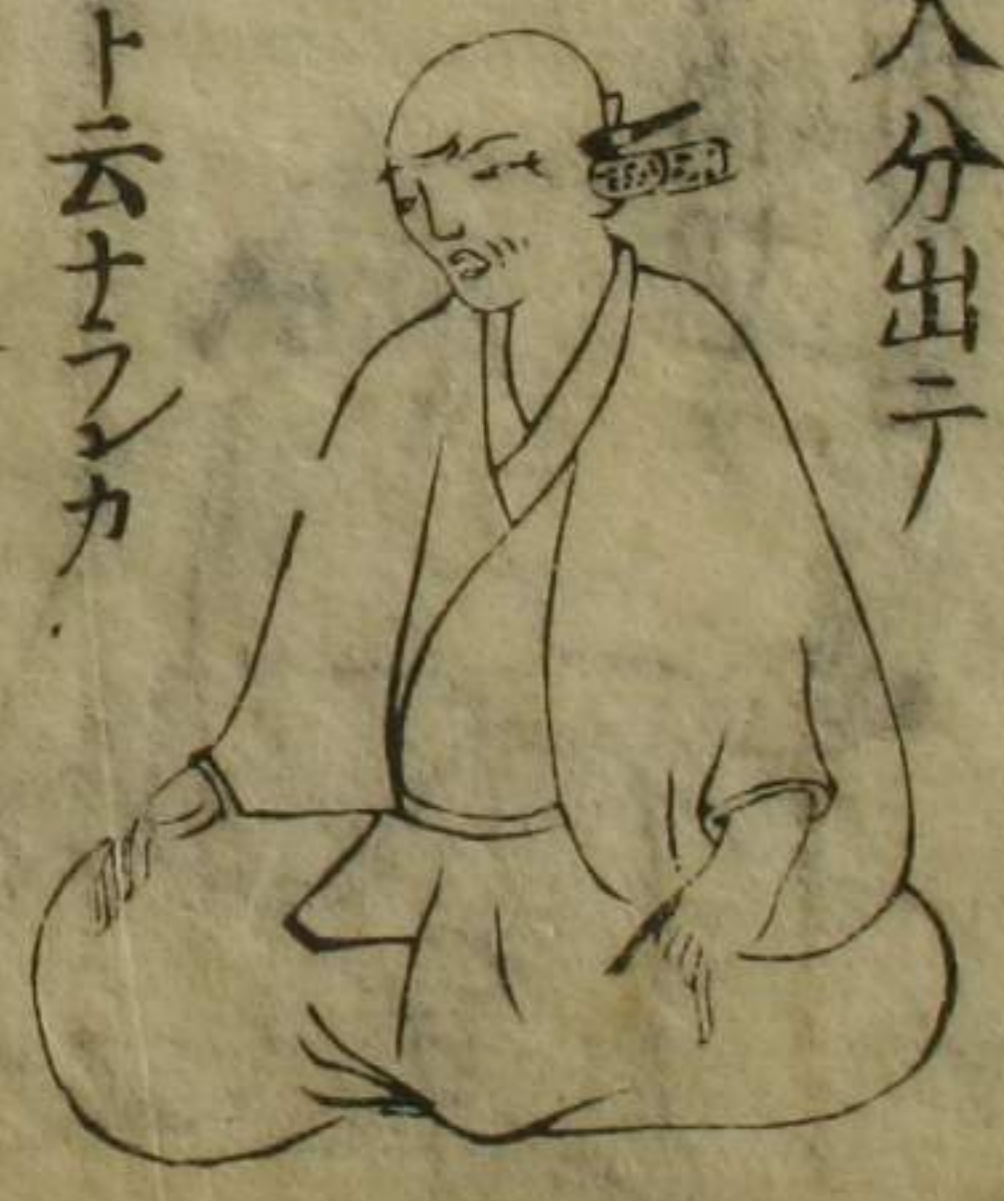 入分出テ
ト云ナランカ